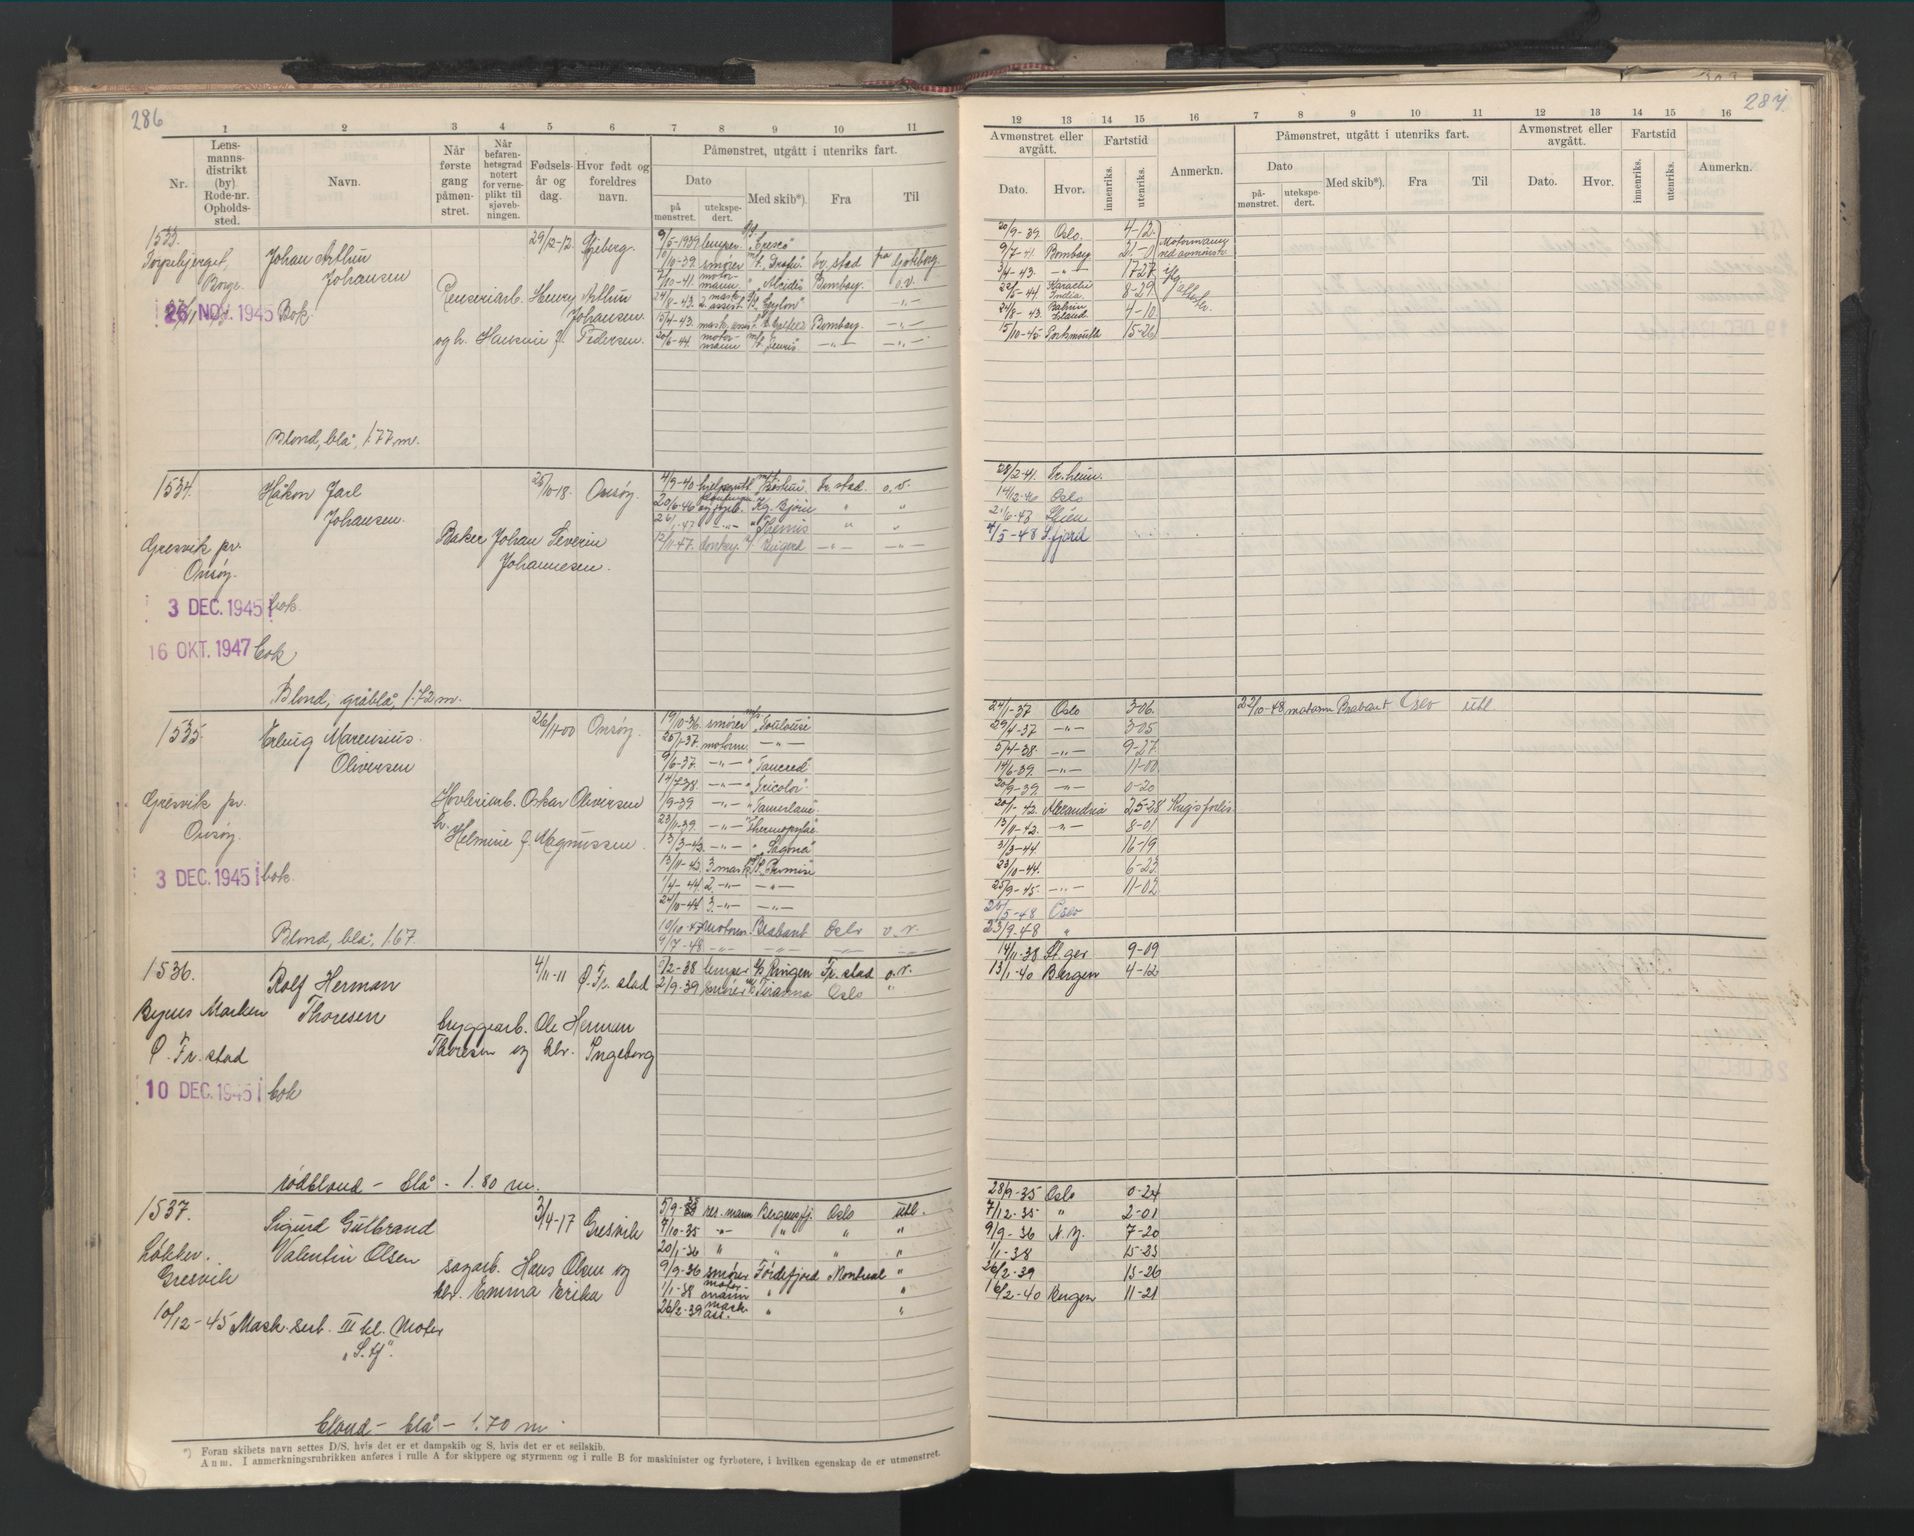 286
1 2 3 4 5 6 7 8 9 10 11
Nr.
Lens-
manns-
distrikt
(by)
Rode-nr.
Opholds-
sted.
Navn.
Når
første
gang
påmøn-
stret.
Når
befaren-
hetsgrad
notert
for verne-
plikt til
sjøveb-
ningen.
Fødsels-
år og
dag.
Hvor født og
foreldres
navn.
Påmønstret, utgått i utenriks fart.
Dato
på
mønstret.
utekspe-
dert.
Med skib*).
Fra
Til
1533.
Torpebjerget,
Borge.
26 NOV. 1945 Bok.
Johan Arthur
Johansen
29/12-12. Gjeberg.
Henry Arthur
Johansen
og h. Pedersen.
9/5-1939 lemper
10/10-39. smører Fr. stad fra Gøteborg.
motor-
mann Bombay. o.v.
24/8-43. 2. mask.
assist. "Ceylon" -"-
15/4-43. mask. Bombay. -"-
20/6-44. motor-
mann -"- -"-
Blond, blå, 1.77 m.
1534.
Håkon Jarl
Johansen.
25/10-18. Onsøy.
Gresvik pr.
Onsøy.
Baker Johan Severin
Johannesen.
4/9-40 Fr. stad. o.v.
20/6-46 Kg. Bjørn " "
26/1-47 -"- "Themis " "
12/11-47. donkey. Ringerd -"- -"-
3 DEC. 1945 bok.
16 OKT. 1947 bok
Blond, gråblå, 1.72 m.
1535.
Erling Marensius
Oliversen
26/11-00 Onsøy.
Gresvik pr.
Onsøy.
Høvleriarb. Oskar Oliversen
h. Helmine f. Magnussen.
3 DEC. 1945 bok.
19/10-36. smører "Toulouse"
25/1-37. motorm. -"-
9/6-37. -"- "Tancred"
14/7 38. -"- "Tricolor"
1/9-39. -"- "Tamerlane"
23/11-39. -"- "Thermopylæ"
13/3-42. -"- "Sagona"
13/11-42. 3 mask
1/4-44. 2. -"- -"-
24/10-44 3. -"- -"-
10/10-47 motorm. Brabant Oslo o.v.
9/7-48. -"- -"- -"- -"-
Blond, blå, 1.67.
1536.
Rolf Herman
Thoresen
4/11-11 Ø. Fr. stad
Bynes Marken
Ø. Fr. stad
bryggearb. Ole Herman
Thoresen og hbr. Ingeborg
/2-38 lemper Ringen Fr. stad o.v.
2/9-39 smører Tiranna Oslo "
10 DEC. 1945 bok
rødblond - blå - 1.80 m.
1537.
Sigurd Gulbrand
Valentin Olsen
3/4-17 Gresvik
Løkker.
Gresvik
sagarb. Hans Olsen og
hbr. Emma Erika
5/9-35 res. mann Bergensfj. Oslo utl.
7/10-35 -"- " " "
20/1-36 " " " "
9/9-36 smører Fordefjord Montreal "
1/1-38 motor-
mann " "
26/2-39 mask.
ass. " "
10/12-45 Mask. sert. III kl. Motor
blond - blå - 1.70 m.
*) Foran skibets navn settes D/S, hvis det er et dampskib og S, hvis det er et seilskib.
Anm. I anmerkningsrubrikken anføres i rulle A for skippere og styrmenn og i rulle B for maskinister og fyrbøtere, i hvilken egenskap de er utmønstret.
287
12 13 14 15 16 7 8 9 10 11 12 13 14 15 16
Avmønstret eller
avgått.
Dato.
Hvor.
Fartstid
innenriks.
utenriks.
Anmerkn.
Påmønstret, utgått i utenriks fart.
Dato
på-
mønstret.
utekspe-
dert.
Med skib*).
Fra
Til
Avmønstret eller
avgått.
Dato.
Hvor.
Fartstid
innenriks.
utenriks.
Anmerkn.
20/9-39. Oslo. 4-12.
9/7-41. Bombay 21-01 Motormann
ved avmønstr.
3/4-43. -"- 17 27
22/5-44. Karachi
India. 8-29
24/8-43. Bahrin
Island 4-10
15/10-45. Portsmouth 15-26
28/2-41. Tr.heim.
14/12-46 Oslo
21/6-47 Skien
4/5-48 S.fjord
24/1-37 Oslo 3-06. 22/10-48 motorm Brabant Oslo utl.
29/4-37 -"- 3-05
5/4-38. -"- 9-27.
14/6-39. -"- 11-00.
20/9-39. -"- 0-20
20/1-42. Alexandria 25-28 Krigsforlis
13/11-42. -"- 8-01
3/3-44 16-19
23/10-44. 6-23.
25/9-45. -"- 11-02
26/5-48 Oslo
23/9-48 "
14/11-38 St. ger 9-09
13/1-40 Bergen 4-12
28/9-35 Oslo 0-24
7/12-35 " 2-01
9/9-36 N.Y. 7-20
1/1-38 15-23
26/2-39 13-26
16/2-40 Bergen 11-21